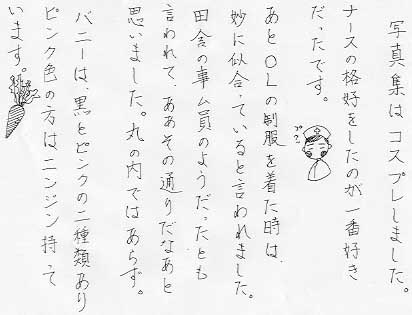 写真集はコスプレしました。
ナースの格好をしたのが一番好き
だったです。
プ?
あとOLの制服を着た時は、
妙に似合っていると言われました。
田舎の事ム員のようだったとも
言われて、ああその通りだなあと
思いました。丸の内ではあらず。
バニーは、黒とピンクの二種類あり
ピンク色の方はニンジン持って
います。